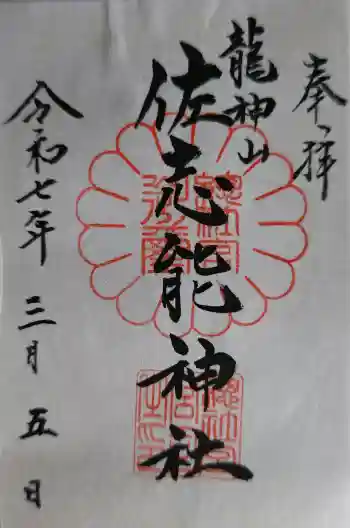 奉拝
龍神山
佐志能神社
令和七年 三月 五日